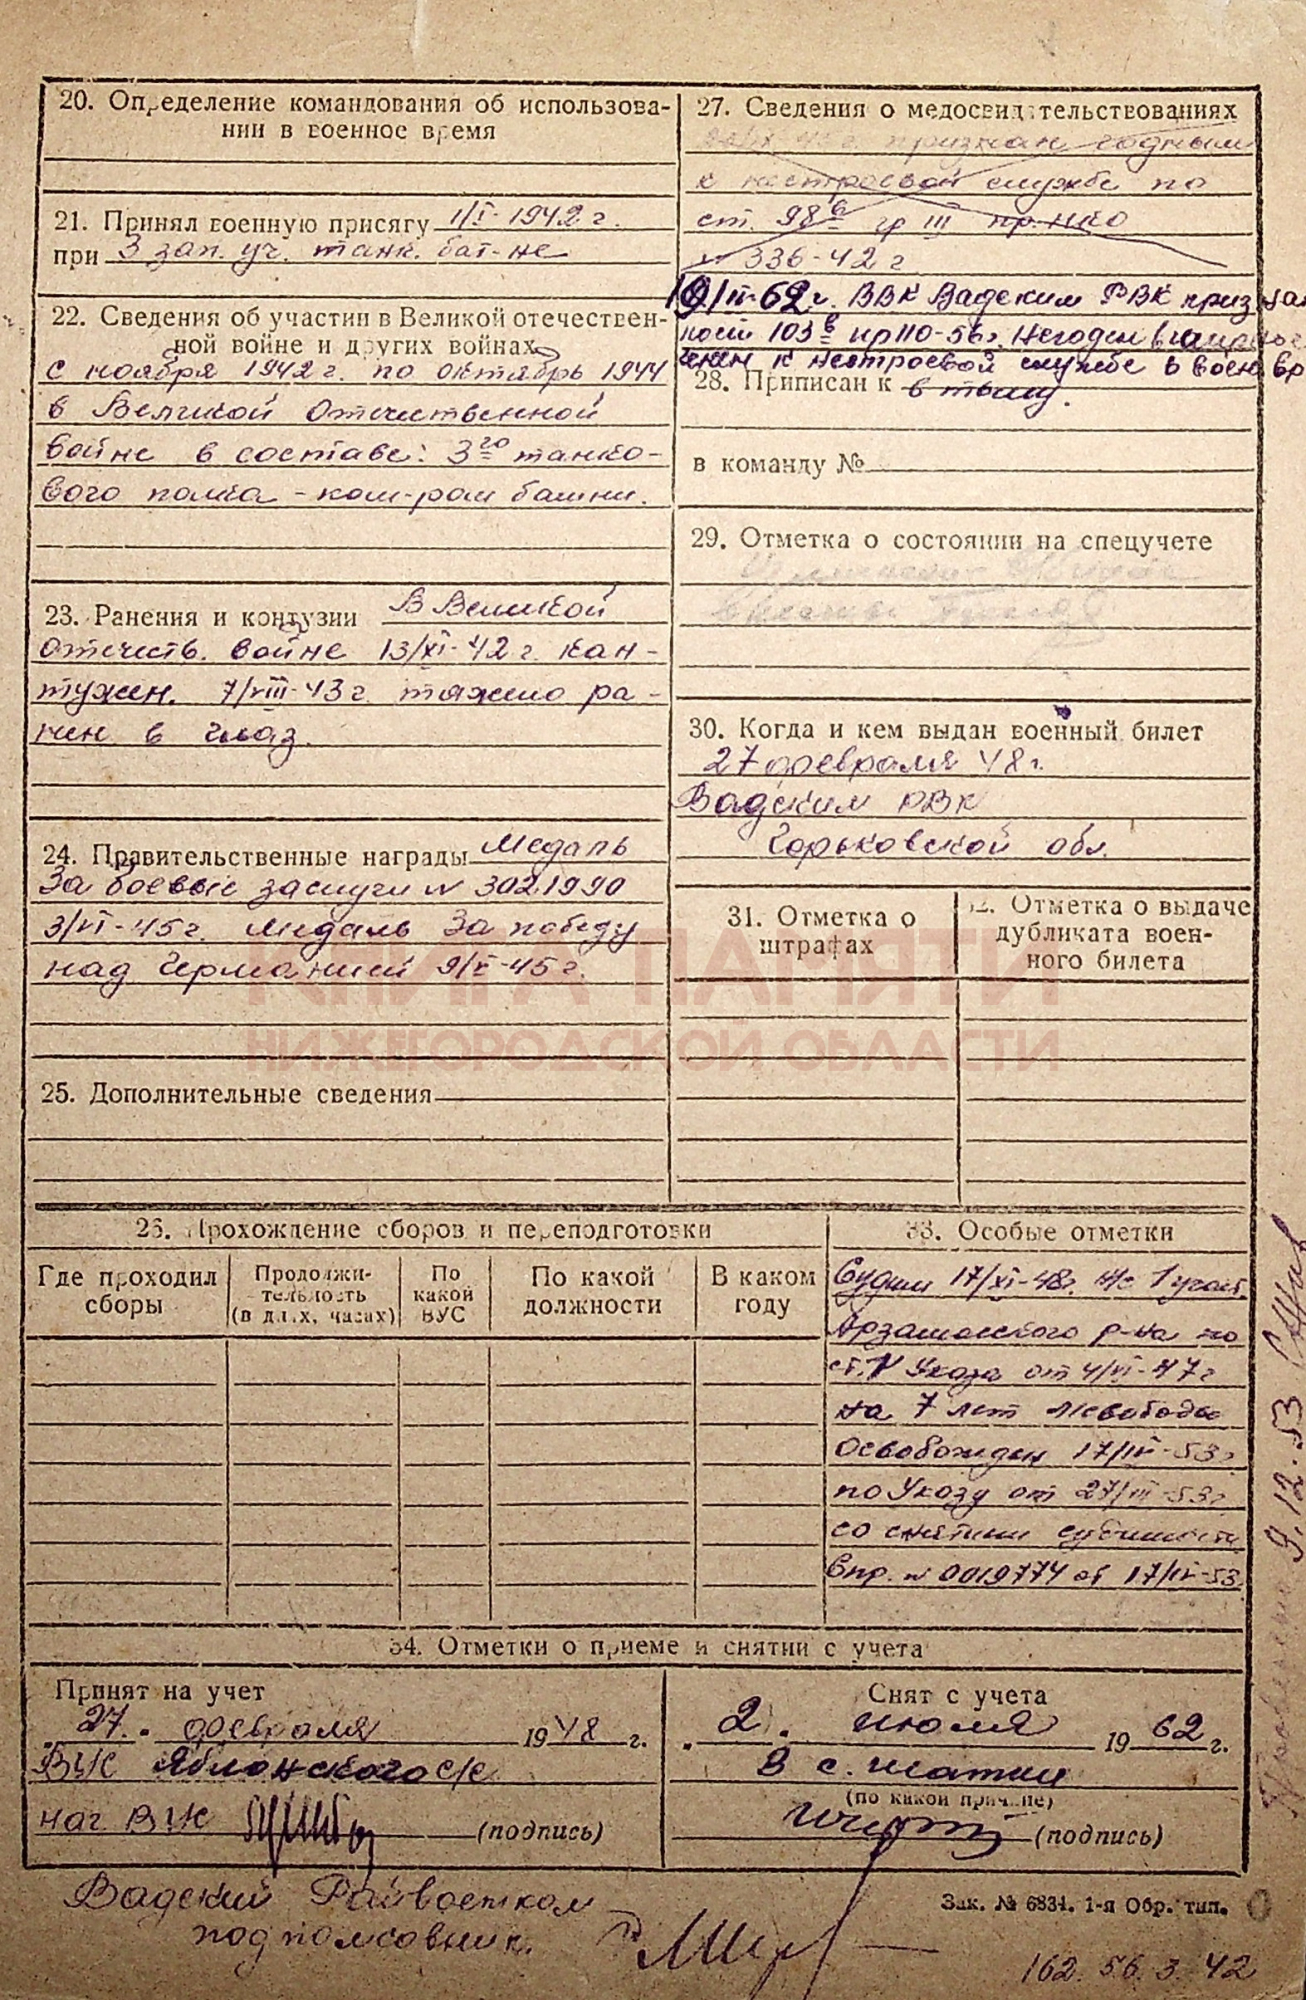 20. Определение командования об использова-
нии в военное время
21. Принял военную присягу 1/I-1942 г.
при 3 зап. уч. танк. бат-не
22. Сведения об участии в Великой отечествен-
ной войне и других войнах
с ноября 1942 г. по октябрь 1944
в Великой Отечественной
войне в составе: 3го танко-
вого полка - ком-ром башни.
23. Ранения и контузии В Великой
Отечеств. войне 13/XI-42 г. кон-
тужен. 7/VIII-43 г. тяжело ра-
нен в глаз.
24. Правительственные награды Медаль
За боевые заслуги N 3021990
3/VI-45 г. Медаль За победу
над Германией 9/V-45 г.
25. Дополнительные сведения
27. Сведения о медосвидетельствованиях
признан годным
к нестроевой службе по
ст. 98б гр III пр. НКО
N 336-42 г
10/III-62 г. ВВК Вадским РВК признан
по ст 103в пр 110-56 г. Негоден в мирное
к нестроевой службе в воен вр
28. Приписан к в тылу.
в команду №
29. Отметка о состоянии на спецучете
30. Когда и кем выдан военный билет
27 февраля 48 г.
Вадским РВК
Горьковской обл.
31. Отметка о
штрафах
32. Отметка о выдаче
дубликата воен-
ного билета
КНИГА ПАМЯТИ
НИЖЕГОРОДСКОЙ ОБЛАСТИ
26. Прохождение сборов и переподготовки
Где проходил
сборы
Продолжи-
тельность
(в днях, часах)
По
какой
ВУС
По какой
должности
В каком
году
33. Особые отметки
Судим 17/XI-48 г. н/с 1 участ.
Арзамасского р-на по
ст. 1 Указа от 4/VI-47 г
на 7 лет л/свободы
Освобожден 17/IV-53 г
по Указу от 27/III-53 г
со снятием судимости
Спр. N 0019774 от 17/IV-53
9.12.53
34. Отметки о приеме и снятии с учета
Принят на учет
"27" февраля 1948 г.
ВУС Яблонского с/с
нач ВУС (подпись)
Снят с учета
"2" июля 1962 г.
В с. Шатки
(по какой причине)
(подпись)
Вадский Райвоенком
подполковник
Зак. № 6834. 1-я Обр. тип.
162. 56. 3. 42